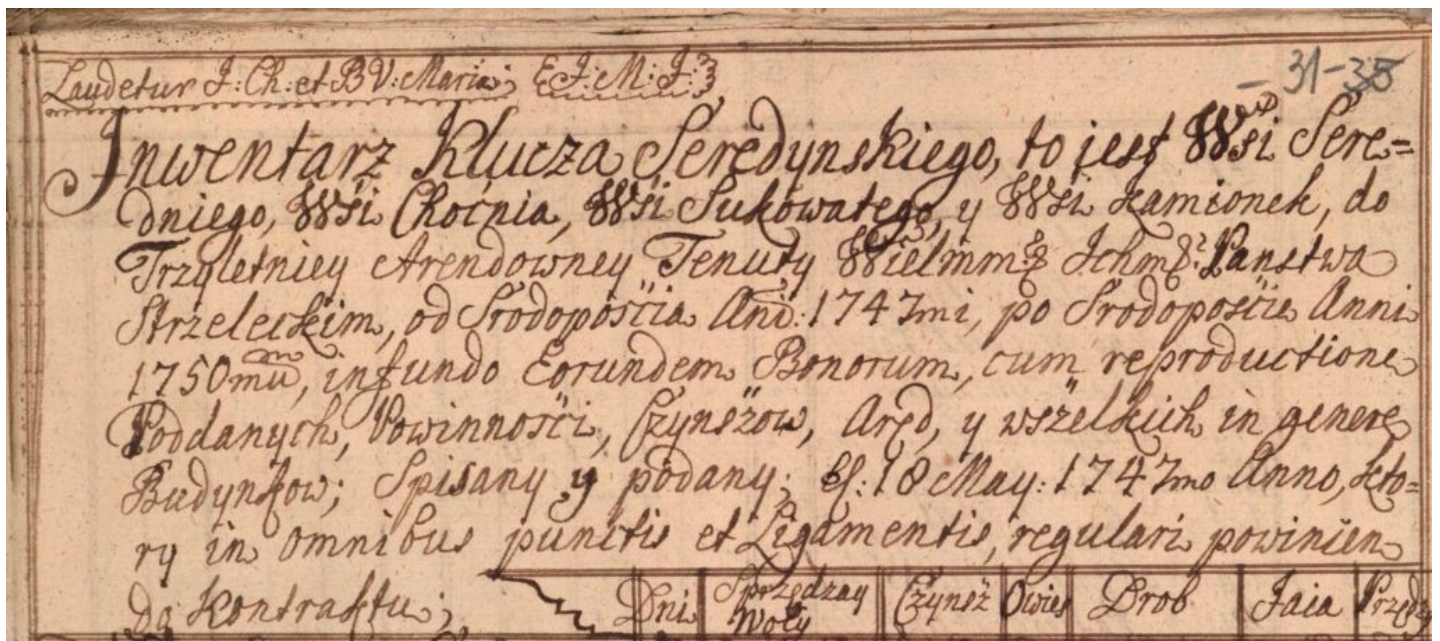 Laudetur J: Ch: et B V: Maria; E J: M: J:
- 31 - 35
Inwentarz Klucza Seredynskiego, to jest Wsi Sere=
dniego, Wśi Choćnia, Wśi Sukowatego, y Wśi Kamionek, do
Trzyletniey Arendowney Tenuty Wielmm Ichm: Panstwa
Strzeleckim, od Srodopośćia Anni: 1747mi, po Srodopośćie Anni
1750mu, in fundo Eorundem Bonorum, cum reproductione
Poddanych, Powinnosći, Czynszow, Aręd, y wszelkich in genere
Budynkow; Spisany y podany; 18 May: 1747mo Anno, kto=
ry in omnibus punctis et Ligamentis, regulari powinien
do Kontraktu; Dni Sprzędzay Woły Czynsz Owies Drob Jaia Przędz